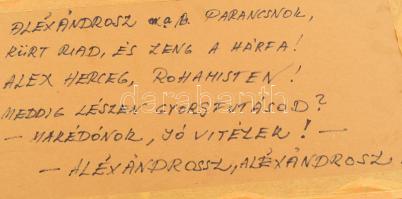 ALÉXÁNDROSZ a PARANCSNOK,
KÜRT RIAD, ÉS ZENG A HÁRFA!
ALEX HERCEG, ROHAMISTEN!
MEDDIG LÉSZEN GYORSFUTÁSOD?
— MAKÉDÓNOK, JÓ VITÉZEK! —
— ALÉXÁNDROSSZ, ALÉXÁNDROSZ
darabanth